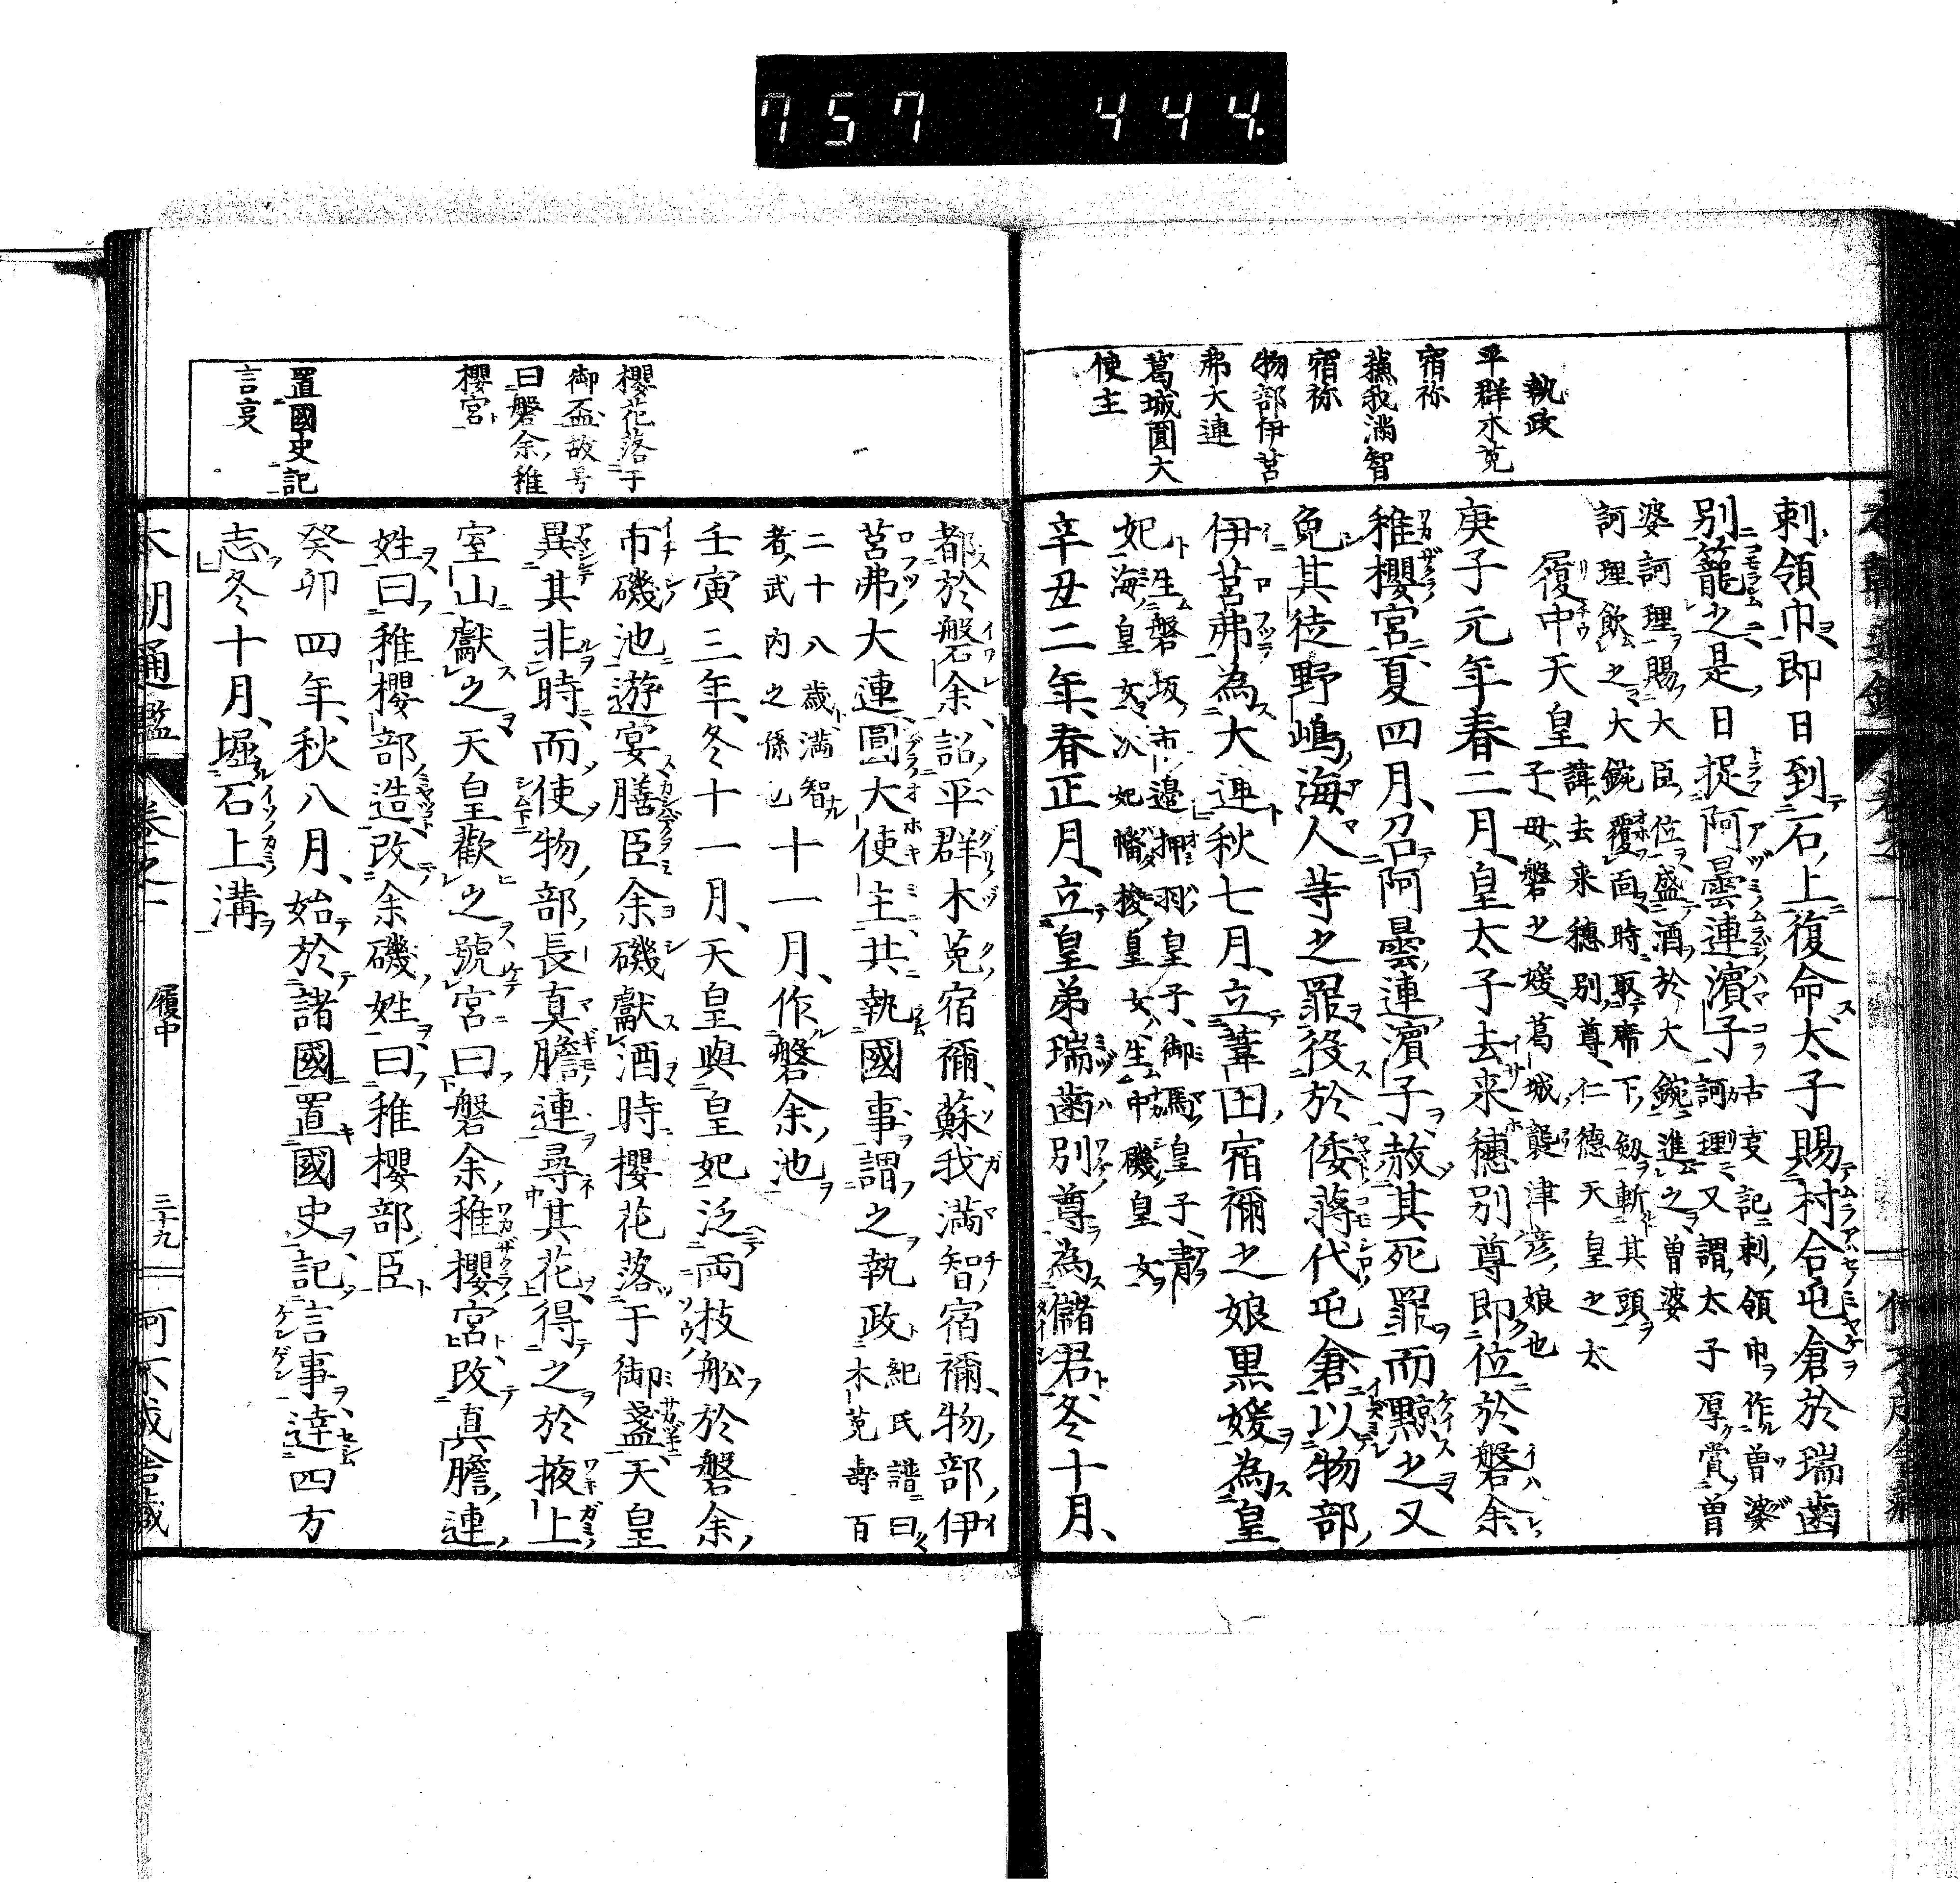 757 444.
執政
平群木菟
宿祢
蘇我満智
宿祢
物部伊莒
弗大連
葛城圓大
使主
刺領巾即日到石上復命太子賜村合屯倉於瑞歯
別籠之是日捉阿曇連濱子
古事記刺領巾作曽婆
訶理又謂太子厚賞曽
婆訶理賜大臣位盛酒於大鋺進之曽婆
訶理飲之大鋺覆面時取席下劔斬其頭
履中天皇
諱去来穂別尊仁徳天皇之太
子母磐之媛葛城襲津彦娘也
庚子元年春二月皇太子去来穂別尊即位於磐余
稚櫻宮夏四月召阿曇連濱子赦其死罪而黥之又
免其徒野嶋海人等之罪役於倭蒋代屯倉以物部
伊莒弗為大連秋七月立葦田宿禰之娘黒媛為皇
妃
生磐坂市邉押羽皇子御馬皇子青
海皇女次妃幡梭皇女生中磯皇女
辛丑二年春正月立皇弟瑞歯別尊為儲君冬十月
櫻花落于
御盃故号
曰磐余稚
櫻宮
置國史記
言事
都於磐余詔平群木菟宿禰蘇我満智宿禰物部伊
莒弗大連圓大使主共執國事謂之執政
紀氏譜曰
木菟壽百
二十八歳満智
者武内之孫也
十一月作磐余池
壬寅三年冬十一月天皇與皇妃泛両枝舩於磐余
市磯池遊宴膳臣余磯獻酒時櫻花落于御盞天皇
異其非時而使物部長真膽連尋其花得之於掖上
室山獻之天皇歡之號宮曰磐余稚櫻宮改真膽連
姓曰稚櫻部造改余磯姓曰稚櫻部臣
癸卯四年秋八月始於諸國置國史記言事達四方
志冬十月堀石上溝
本朝通鑑
卷之一
履中
三十九